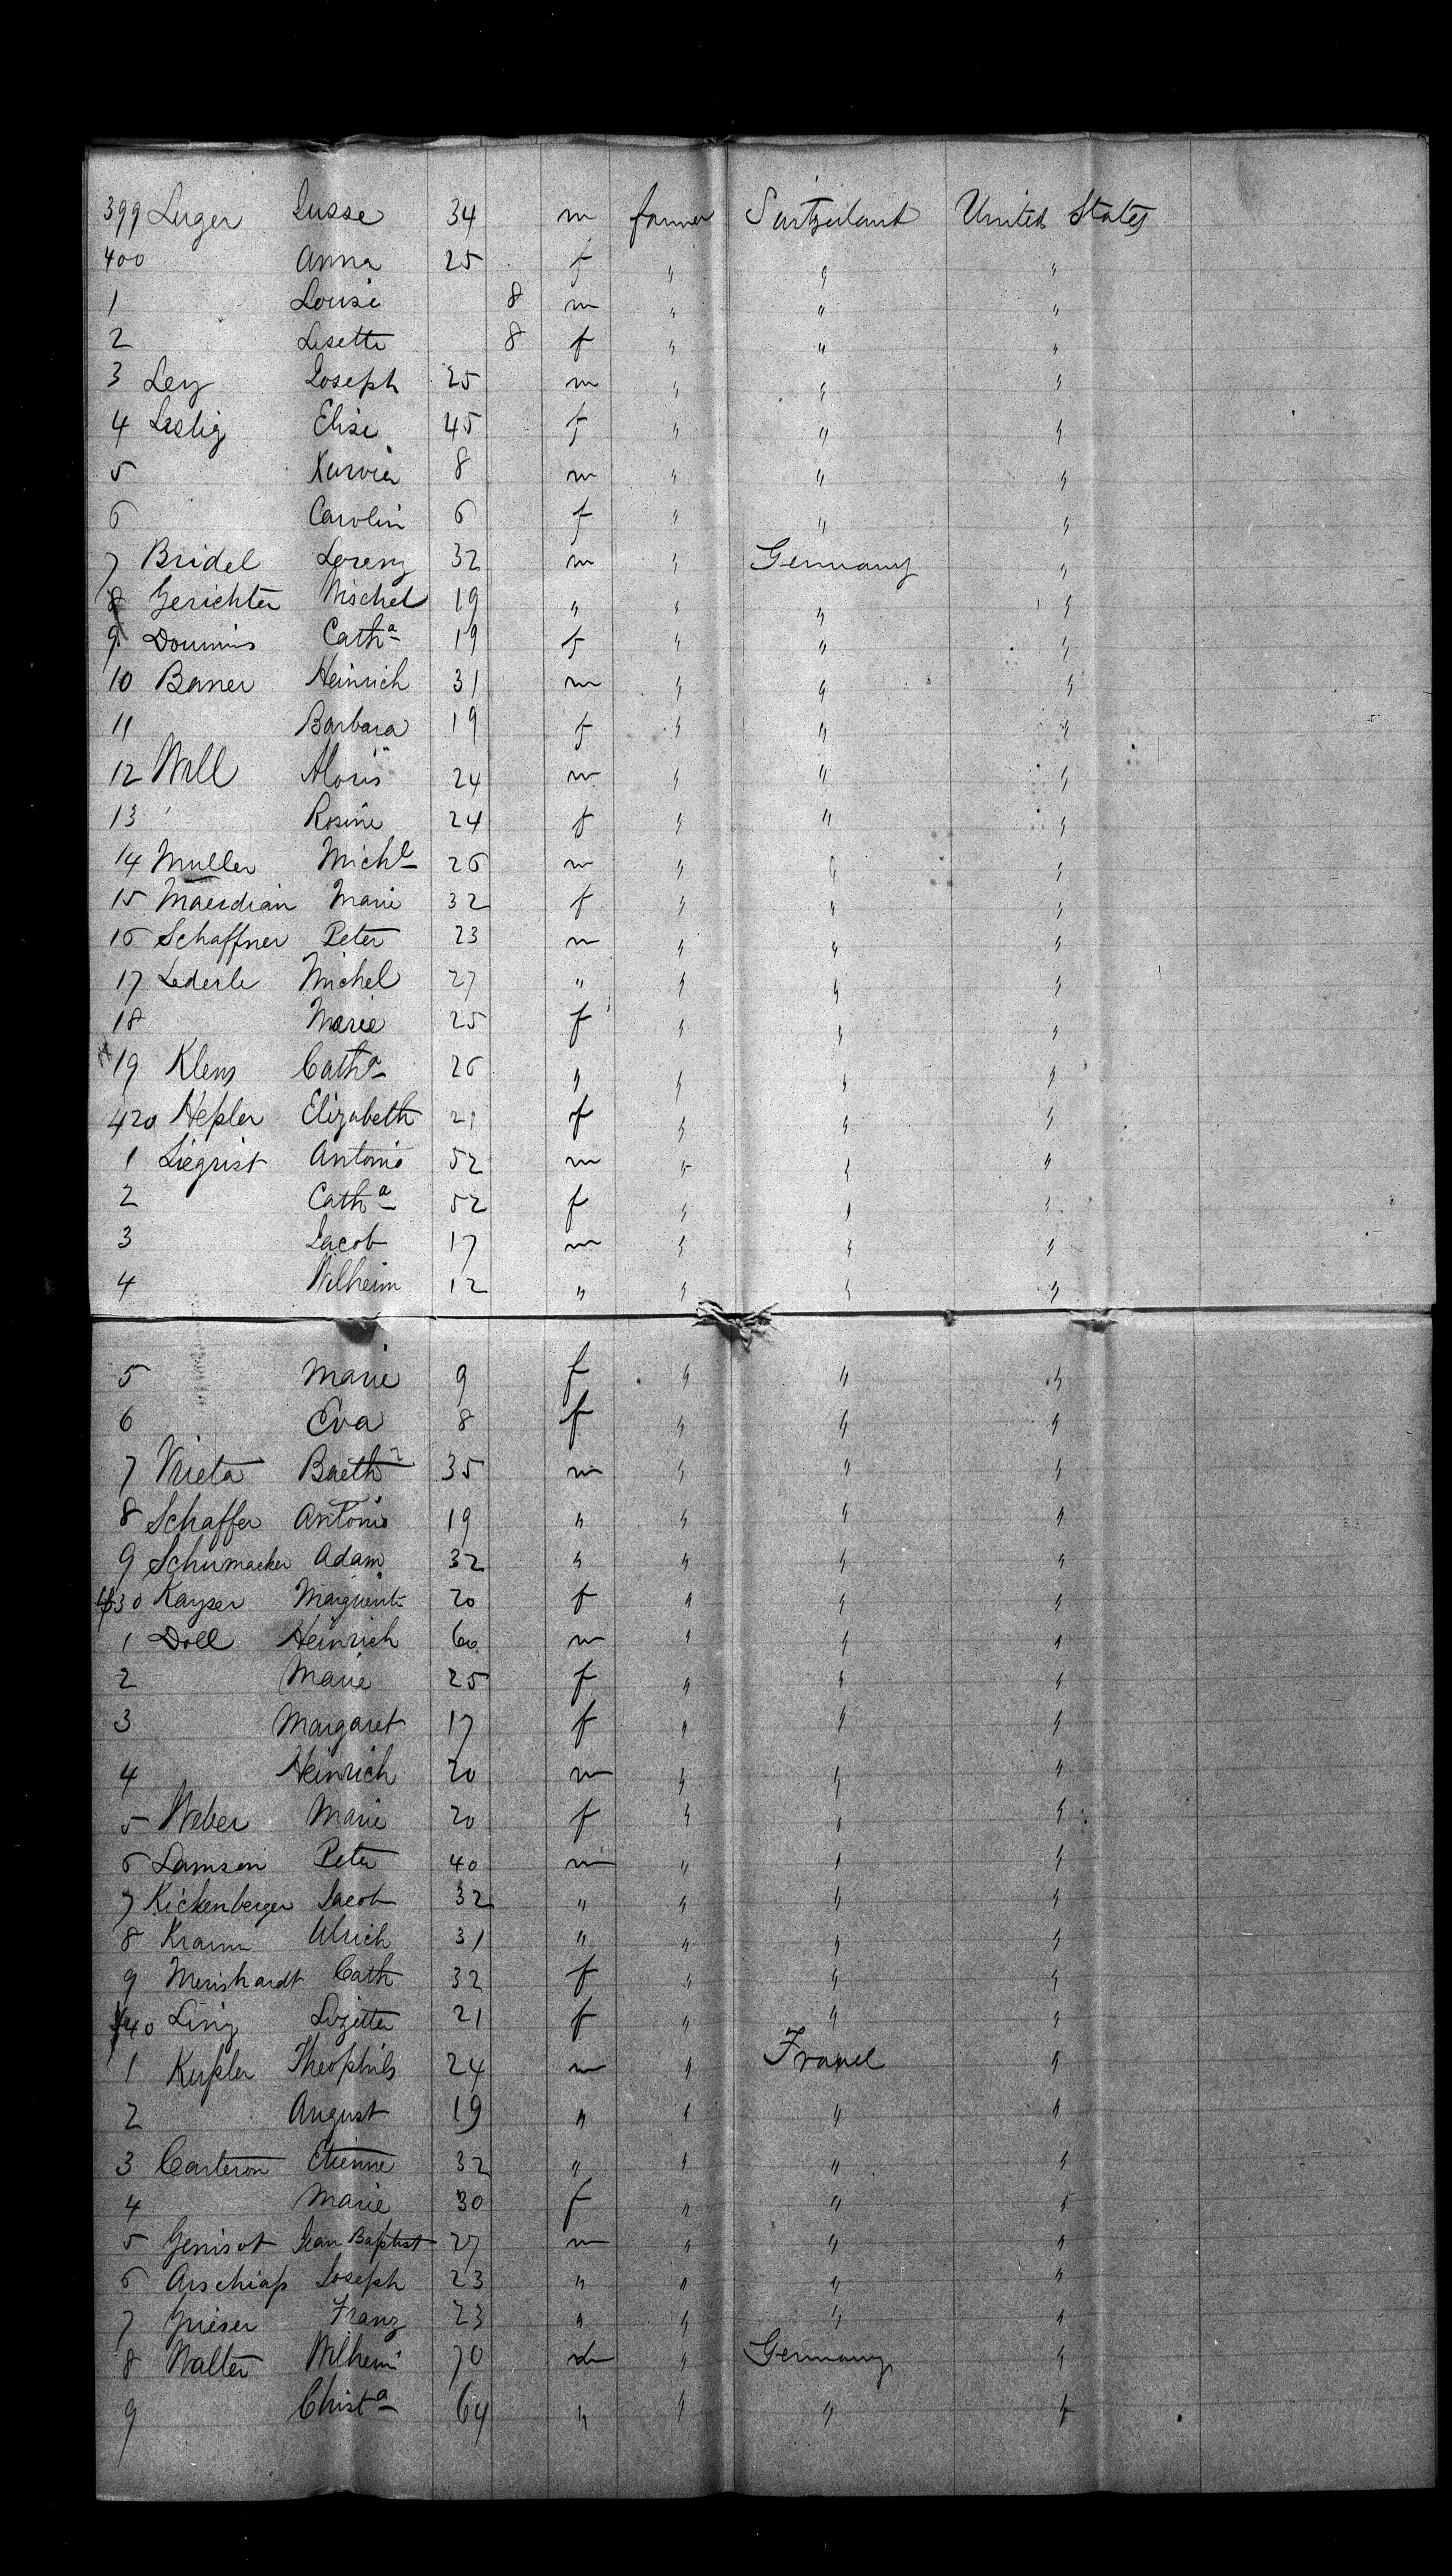 399 Luger Lusse 34 m farmer Switzerland United States
400 Anna 25 f " " "
1 Louise 8 m " " "
2 Lisette 8 f " " "
3 Ley Joseph 25 m " " "
4 Leslig Elise 45 f " " "
5 Xavier 8 m " " "
6 Carolin 6 f " " "
7 Bridel Lorenz 32 m " Germany "
8 Gerichter Michel 19 " " " "
9 Cath a 19 f " " "
10 Baner Heinrich 31 m " " "
11 Barbara 19 f " " "
12 Will Alois 24 m " " "
13 Rosine 24 f " " "
14 Muller Michl 26 m " " "
15 Maerdian Marie 32 f " " "
16 Schaffner Peter 23 m " " "
17 Lederle Michel 27 " " " "
18 Marie 25 f " " "
19 Klem Cath a 26 " " " "
420 Hepler Elizabeth 21 f " " "
1 Siegrist Antonio 52 m " " "
2 Cath a 52 f " " "
3 Jacob 17 m " " "
4 Wilheim 12 " " " "
5 Marie 9 f " " "
6 Eva 8 f " " "
7 Vrieta Baeth 35 m " " "
8 Schaffer Antonio 19 " " " "
9 Schumacker Adam 32 " " " "
430 Kayser Marguerite 20 f " " "
1 Doll Heinrich 60 m " " "
2 Marie 25 f " " "
3 Margaret 17 f " " "
4 Heinrich 20 m " " "
5 Weber Marie 20 f " " "
6 Lamson Peter 40 m " " "
7 Kickenberger Jacob 32 " " " "
8 Kramm Ulrich 31 " " " "
9 Menshardt Cath 32 f " " "
440 Ling Lizette 21 f " " "
1 Kupler Theophils 24 m " France "
2 August 19 " " " "
3 Carteron Etienne 32 " " " "
4 Marie 30 f " " "
5 Genisot Jean Baptist 27 m " " "
6 Aischiap Joseph 23 " " " "
7 Grieser Franz 23 " " " "
8 Walter Wilheim 70 m " Germany "
9 Christ a 64 " " " "